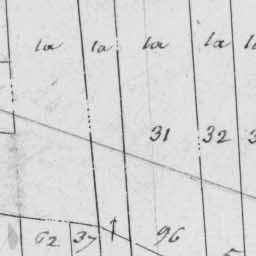 la la la la
31 32
62 37 96